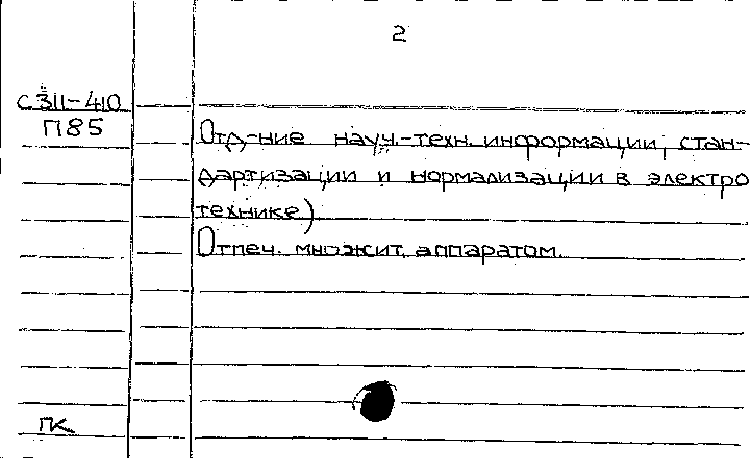 2
С311-40
П85
Отд-ние науч.-техн. информации, стан-
дартизации и нормализации в электро
технике)
Отпеч. множит. аппаратом.
ПК